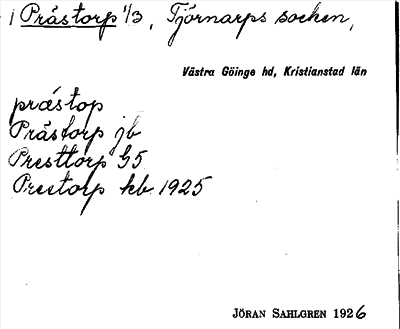 1 Prästorp 1/3, Tjörnarps socken,
Västra Göinge hd, Kristianstad län
præstop
Prästorp jb
Presttorp G5
Prestorp kb 1925
JÖRAN SAHLGREN 1926